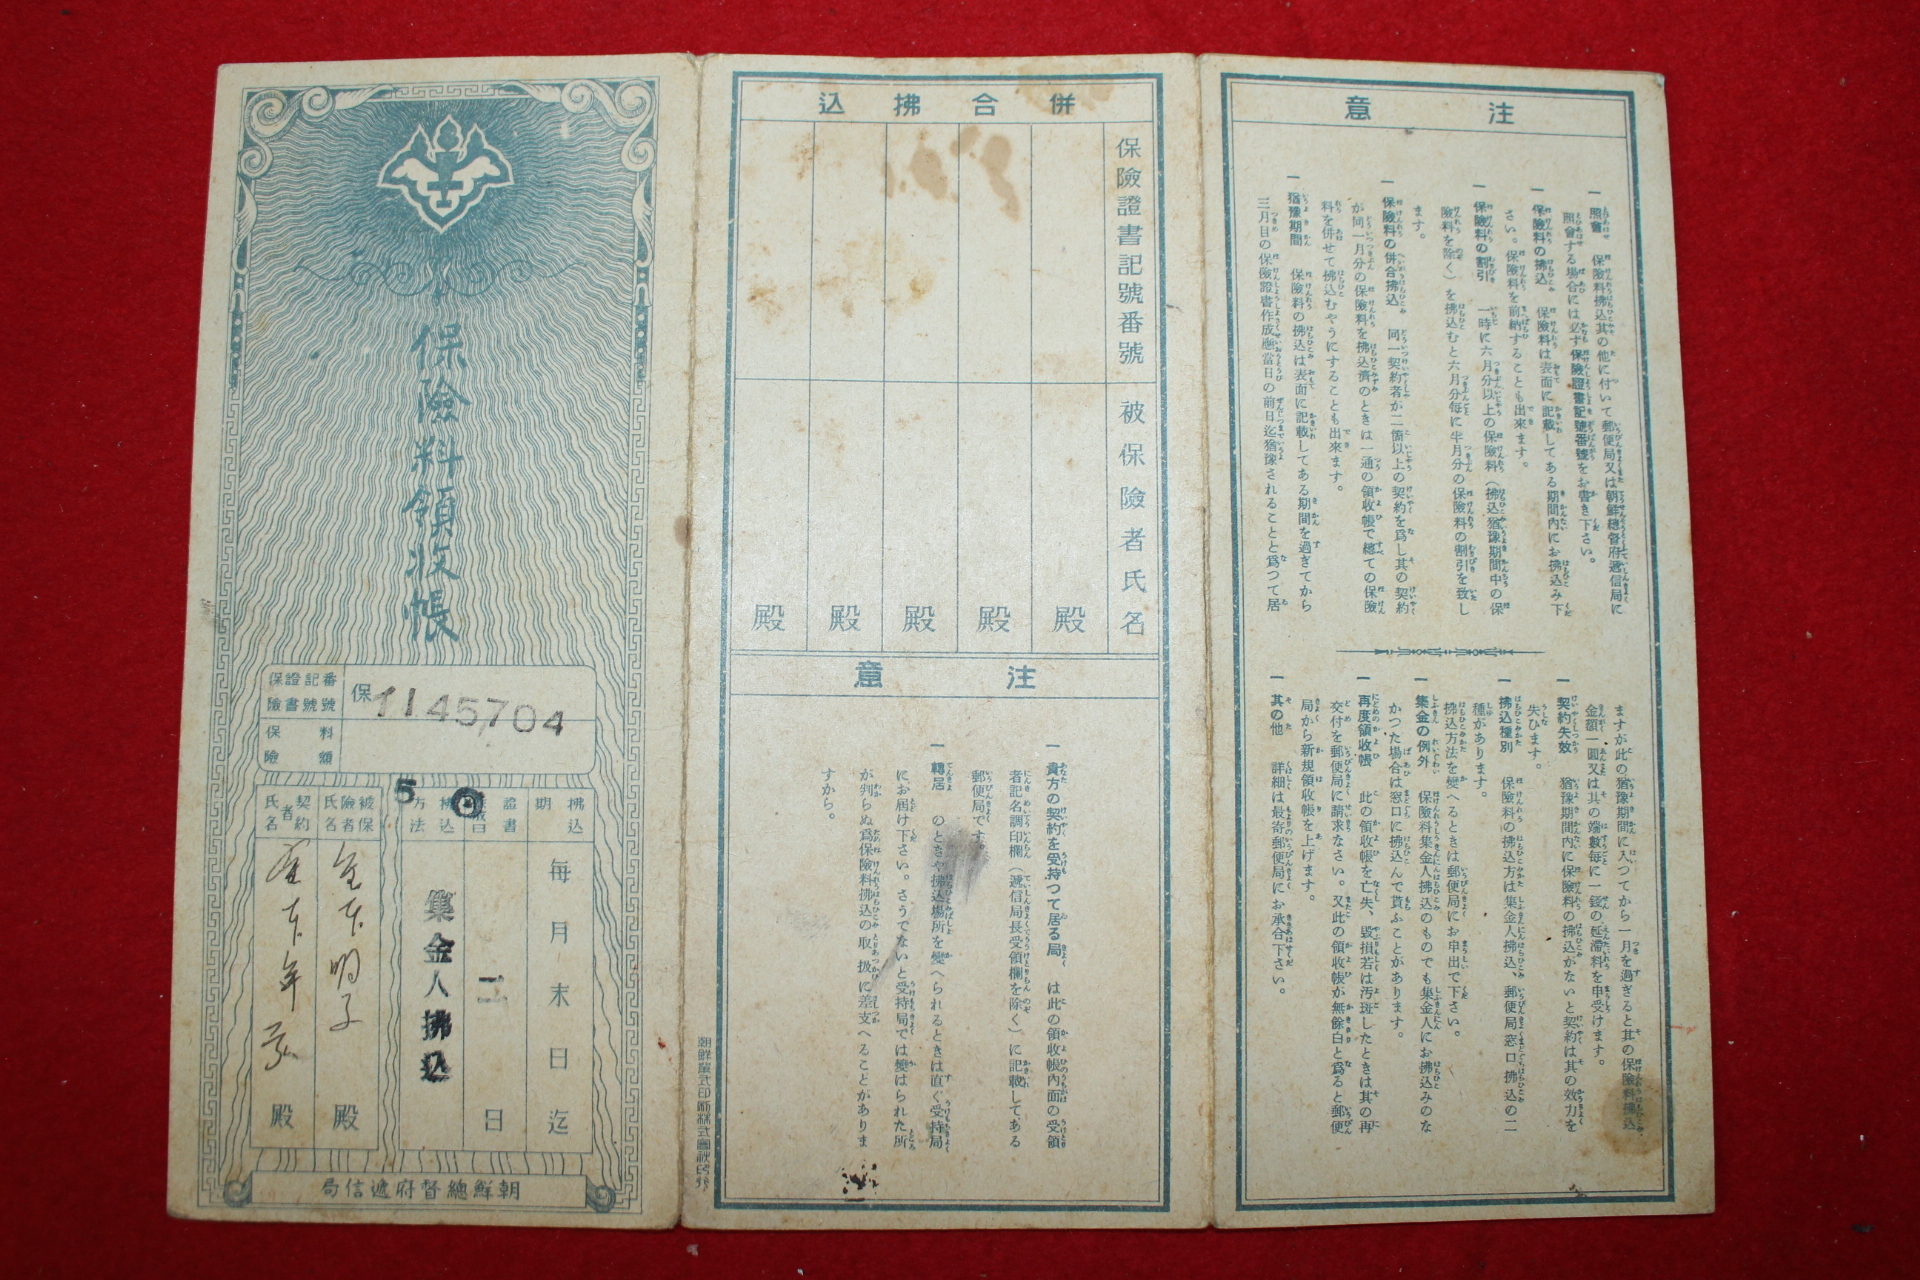 注意
一 照會 保險料拂込其の他に付いて郵便局又は朝鮮總督府遞信局に
照會する場合には必ず保險證書記號番號をお書き下さい。
一 保險料の拂込 保險料は表面に記載してある期間內にお拂込み下
さい。保險料を前納することも出來ます。
一 保險料の割引 一時に六月分以上の保險料（拂込猶豫期間中の保
險料を除く）を拂込むと六月分每に半月分の保險料の割引を致し
ます。
一 保險料の併合拂込 同一契約者が二箇以上の契約を爲し其の契約
が同一月分の保險料を拂込濟のときは一通の領收帳で總ての保險
料を併せて拂込むやうにすることも出來ます。
一 猶豫期間 保險料の拂込は表面に記載してある期間を過ぎてから
三月目の保險證書作成應當日の前日迄猶豫されることと爲つて居
ますが此の猶豫期間に入つてから一月を過ぎると其の保險料拂込
金額一圓又は其の端數每に一錢の延滯料を申受けます。
一 契約失效 猶豫期間內に保險料の拂込がないと契約は其の效力を
失ひます。
一 拂込種別 保險料の拂込方は集金人拂込、郵便局窓口拂込の二
種があります。
拂込方法を變へるときは郵便局にお申出で下さい。
一 集金の例外 保險料集金人拂込のものでも集金人にお拂込みのな
かつた場合は窓口に拂込んで貰ふことがあります。
一 再度領收帳 此の領收帳を亡失、毀損若は汚斑したときは其の再
交付を郵便局に請求なさい。又此の領收帳か無餘白と爲ると郵便
局から新規領收帳を上げます。
一 其の他 詳細は最寄郵便局にお承合下さい。
併合拂込
保險證書記號番號
被保險者氏名
殿
殿
殿
殿
殿
注意
一 貴方の契約を受持つて居る局 は此の領收帳內面の受領
者記名調印欄（遞信局長受領欄を除く）に記載してある
郵便局です。
一 轉居 のときや拂込場所を變へられるときは直ぐ受持局
にお届け下さい。さうでないと受持局では變はられた所
が判らぬ爲保險料拂込の取扱に差支へることがありま
すから。
保險料領收帳
保險證書記號番號
保1145704
保險料額
拂込期
每月末日迄
證書
二日
拂込方法
50
集金人拂込
被保險者氏名
殿
契約者氏名
殿
朝鮮總督府遞信局